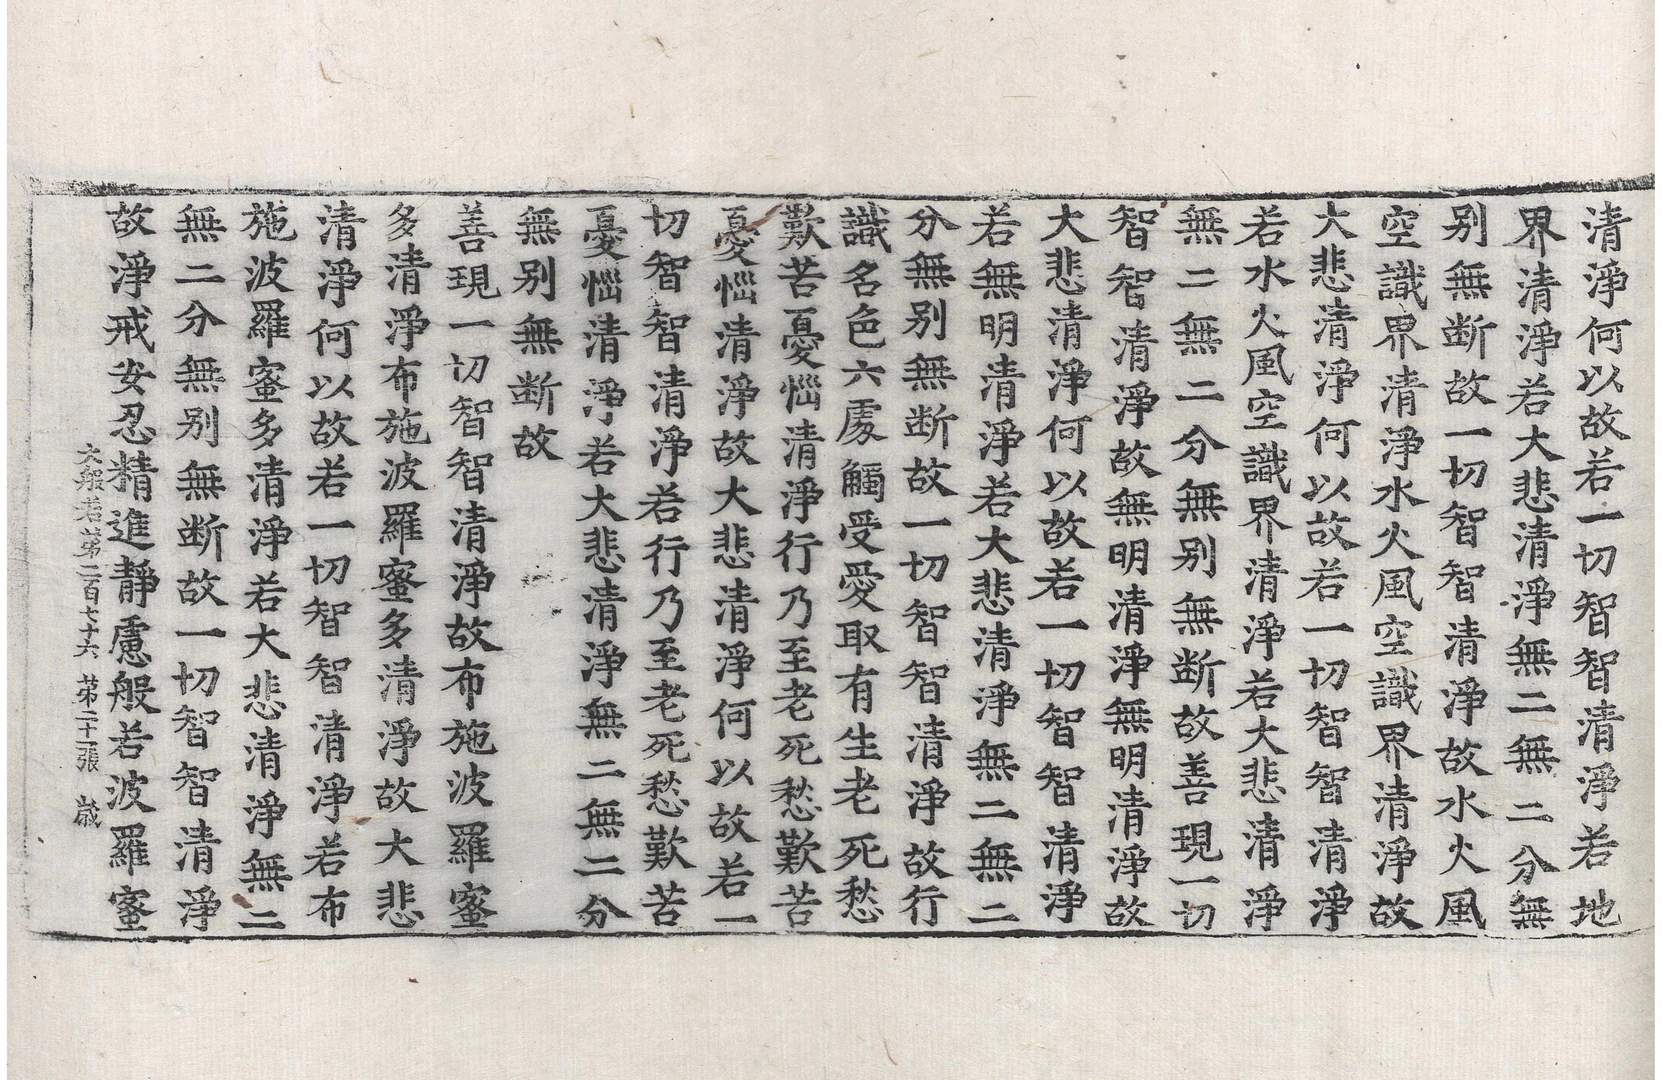 清淨何以故若一切智智清淨若地
界清淨若大悲清淨無二無二分無
别無断故一切智智清淨故水火風
空識界清淨水火風空識界清淨故
大悲清淨何以故若一切智智清淨
若水火風空識界清淨若大悲清淨
無二無二分無别無断故善現一切
智智清淨故無明清淨無明清淨故
大悲清淨何以故若一切智智清淨
若無明清淨若大悲清淨無二無二
分無别無断故一切智智清淨故行
識名色六處觸受愛取有生老死愁
歎苦憂惱清淨行乃至老死愁歎苦
憂惱清淨故大悲清淨何以故若一
切智智清淨若行乃至老死愁歎苦
憂惱清淨若大悲清淨無二無二分
無别無断故
善現一切智智清淨故布施波羅蜜
多清淨布施波羅蜜多清淨故大悲
清淨何以故若一切智智清淨若布
施波羅蜜多清淨若大悲清淨無二
無二分無别無断故一切智智清淨
故淨戒安忍精進靜慮般若波羅蜜
大般若第二百七十六 第二十二張 歲